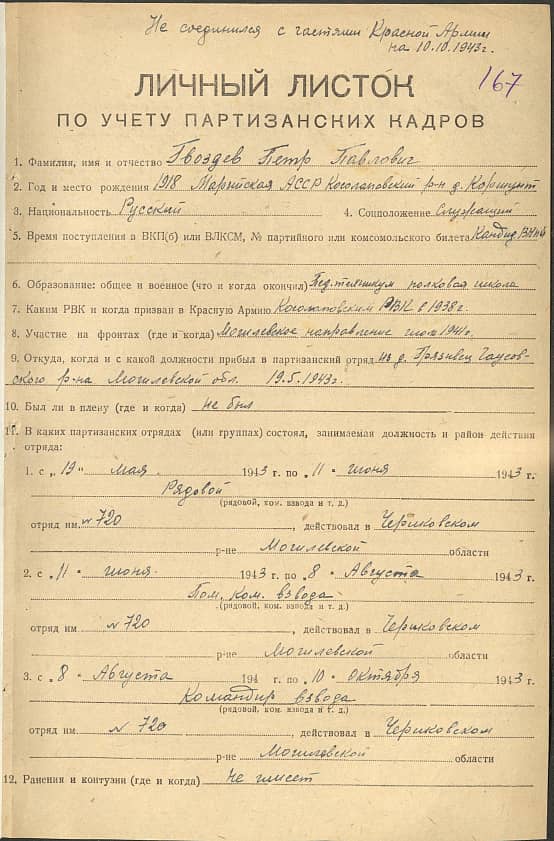 Не соединился с частями Красной Армии
на 10.10.1943г.
167
ЛИЧНЫЙ ЛИСТОК
ПО УЧЕТУ ПАРТИЗАНСКИХ КАДРОВ
1. Фамилия, имя и отчество Гвоздев Петр Павлович
2. Год и место рождения 1918 Марийская АССР Косолаповский р-н д. Коршунт
3. Национальность Русский 4. Соцположение Служащий
5. Время поступления в ВКП(б) или ВЛКСМ, № партийного или комсомольского билета Кандид. ВКПб
6. Образование: общее и военное (что и когда окончил) Пед.техникум полковая школа
7. Каким РВК и когда призван в Красную Армию Косолаповским РВК в 1938г.
8. Участие на фронтах (где и когда) Могилевское направление июль 1941г.
9. Откуда, когда и с какой должности прибыл в партизанский отряд из д. Грязивец Чаусов-
ского р-на Могилевской обл. 19.5.1943г.
10. Был ли в плену (где и когда) не был
11. В каких партизанских отрядах (или группах) состоял, занимаемая должность и район действия
отряда:
1. с „19" мая 1943 г. по „11" июня 1943 г.
Рядовой
(рядовой, ком. взвода и т. д.)
отряд им. №720, действовал в Чериковском
р-не Могилевской области
2. с „11" июня 1943 г. по „8" Августа 1943 г.
Пом. ком. взвода
(рядовой, ком. взвода и т. д.)
отряд им №720, действовал в Чериковском
р-не Могилевской области
3. с „8" Августа 194 г. по „10" октября 1943 г.
Командир взвода
(рядовой, ком. взвода и т. д.)
отряд им №720, действовал в Чериковском
р-не Могилевской области
12. Ранения и контузии (где и когда) Не имеет